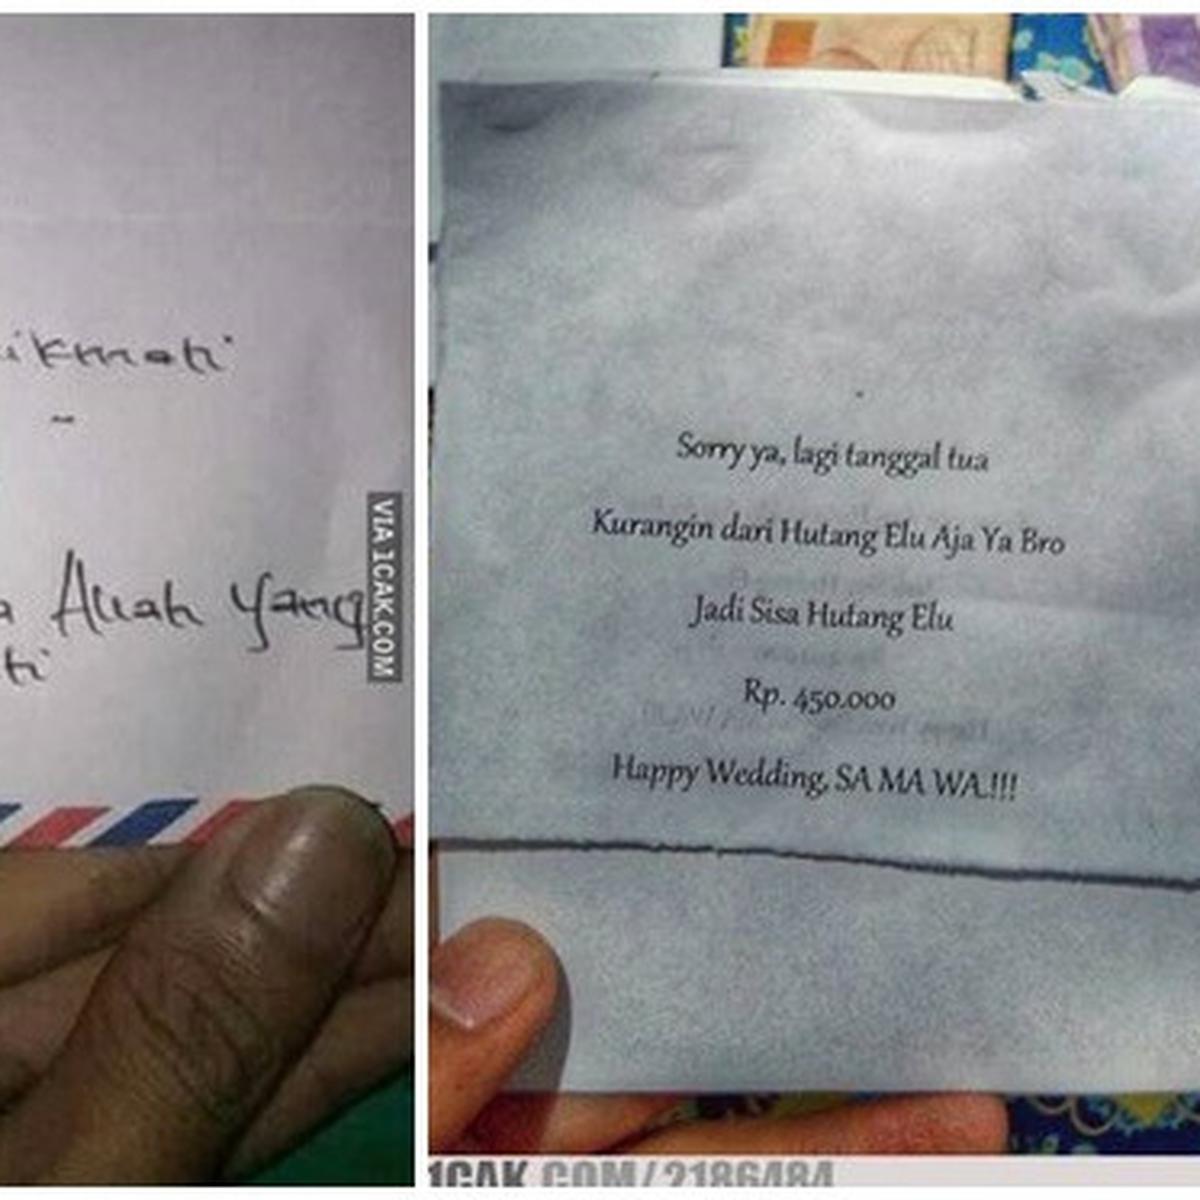 Allah yang
VIA 1CAK.COM
Sorry ya, lagi tanggal tua
Kurangin dari Hutang Elu Aja Ya Bro
Jadi Sisa Hutang Elu
Rp. 450.000
Happy Wedding, SA MA WA.!!!
1CAK.COM/2186484